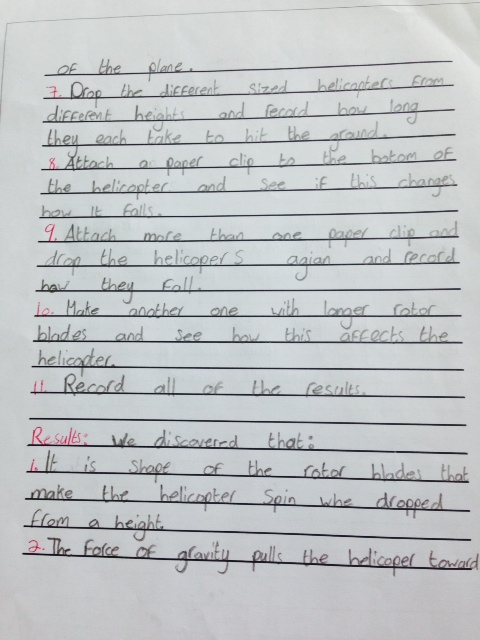 of the plane.
7. Drop the different sized helicopters from
different heights and record how long
they each take to hit the ground.
8. Attach a paper clip to the botom of
the helicopter and see if this changes
how it falls.
9. Attach more than one paper clip and
drop the helicopers agian and record
how they fall.
10. Make another one with longer rotor
blades and see how this affects the
helicopter.
11. Record all of the results.
Results: we discovered that:
1. It is shape of the rotor blades that
make the helicopter spin whe dropped
from a height.
2. The force of gravity pulls the helicoper toward